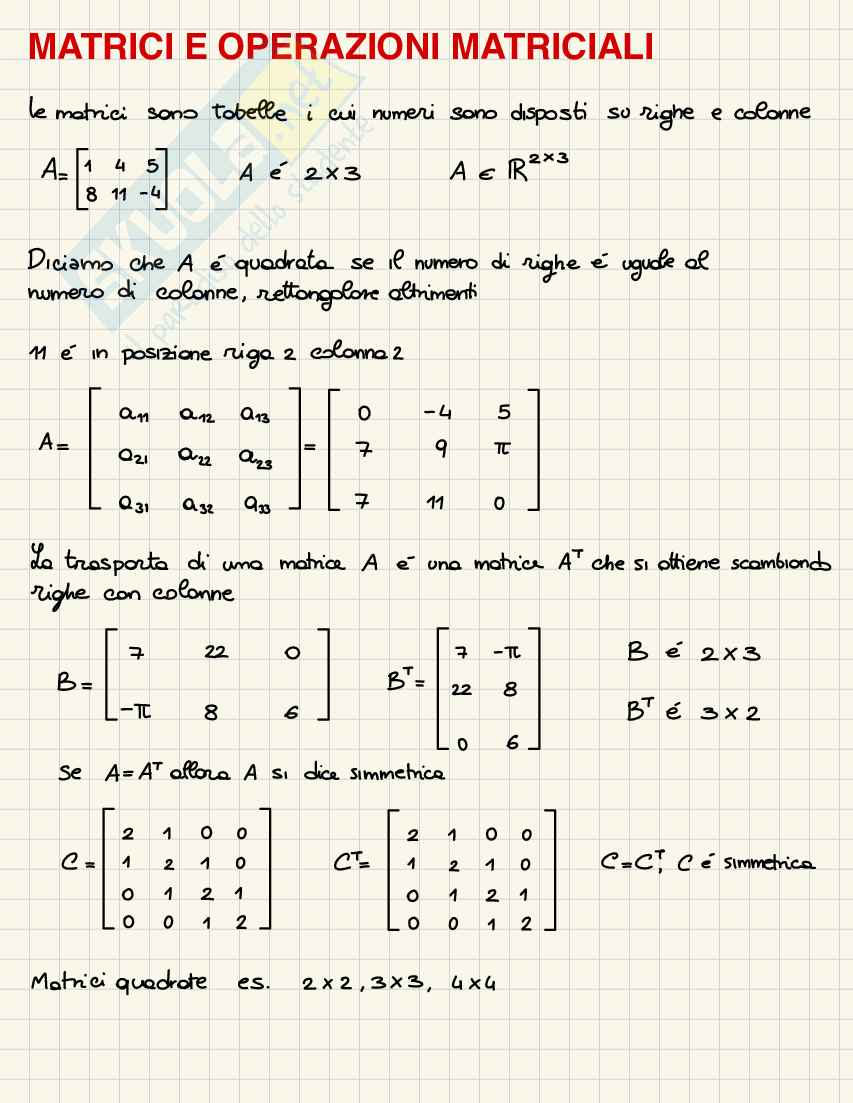 MATRICI E OPERAZIONI MATRICIALI
le matrici sono tabelle i cui numeri sono disposti su righe e colonne
A = [1 4 5
8 11 -4] A é 2×3 A ∈ ℝ^2×3
Diciamo che A é quadrata se il numero di righe é uguale al
numero di colonne, rettangolare altrimenti
11 é in posizione riga 2 colonna 2
A = [a₁₁ a₁₂ a₁₃ = [0 -4 5
a₂₁ a₂₂ a₂₃ 7 9 π
a₃₁ a₃₂ a₃₃] 7 11 0]
La trasporta di una matrice A é una matrice Aᵀ che si ottiene scambiando
righe con colonne
B = [7 22 0 Bᵀ = [7 -π B é 2×3
22 8
-π 8 6] 0 6] Bᵀ é 3×2
Se A = Aᵀ allora A si dice simmetrica
C = [2 1 0 0 Cᵀ = [2 1 0 0
1 2 1 0 1 2 1 0 C = Cᵀ, C é simmetrica
0 1 2 1 0 1 2 1
0 0 1 2] 0 0 1 2]
Matrici quadrate es. 2×2, 3×3, 4×4
SKUOLA.net
il paradiso dello studente